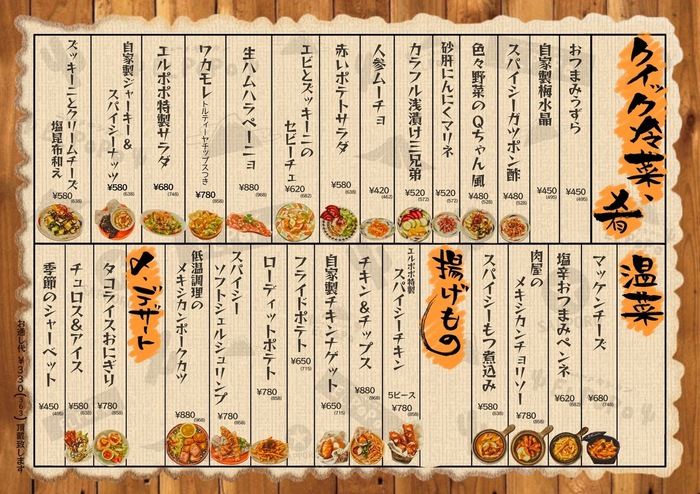 クイック冷菜、肴
おつまみうずら
¥450
(495)
自家製梅水晶
¥450
(495)
スパイシーガツポン酢
¥480
(528)
色々野菜のQちゃん風
¥480
(528)
砂肝にんにくマリネ
¥520
(572)
カラフル浅漬け三兄弟
¥520
(572)
人参ムーチョ
¥420
(462)
赤いポテトサラダ
¥580
(638)
エビとズッキーニの
セビーチェ
¥620
(682)
生ハムハラペーニョ
¥880
(968)
ワカモレ トルティーヤチップスつき
¥780
(858)
エルポポ特製サラダ
¥680
(748)
自家製ジャーキー&
スパイシーナッツ
¥580
(638)
ズッキーニとクリームチーズ
塩昆布和え
¥580
(638)
温菜
マッケンチーズ
¥680
(748)
塩辛おつまみペンネ
¥620
(682)
肉屋の
メキシカンチョリソー
¥780
(858)
スパイシーもつ煮込み
¥580
(638)
揚げもの
エルポポ特製
スパイシーチキン
5ピース
¥780
(858)
チキン&チップス
¥880
(968)
自家製チキンナゲット
¥650
(715)
フライドポテト
¥650
(715)
ローディットポテト
¥780
(858)
スパイシー
ソフトシェルシュリンプ
¥780
(858)
低温調理の
メキシカンポークカツ
¥880
(968)
〆、デザート
タコライスおにぎり
¥780
(858)
チュロス&アイス
¥580
(638)
季節のシャーベット
¥450
(495)
お通し代¥330(363)頂戴致します